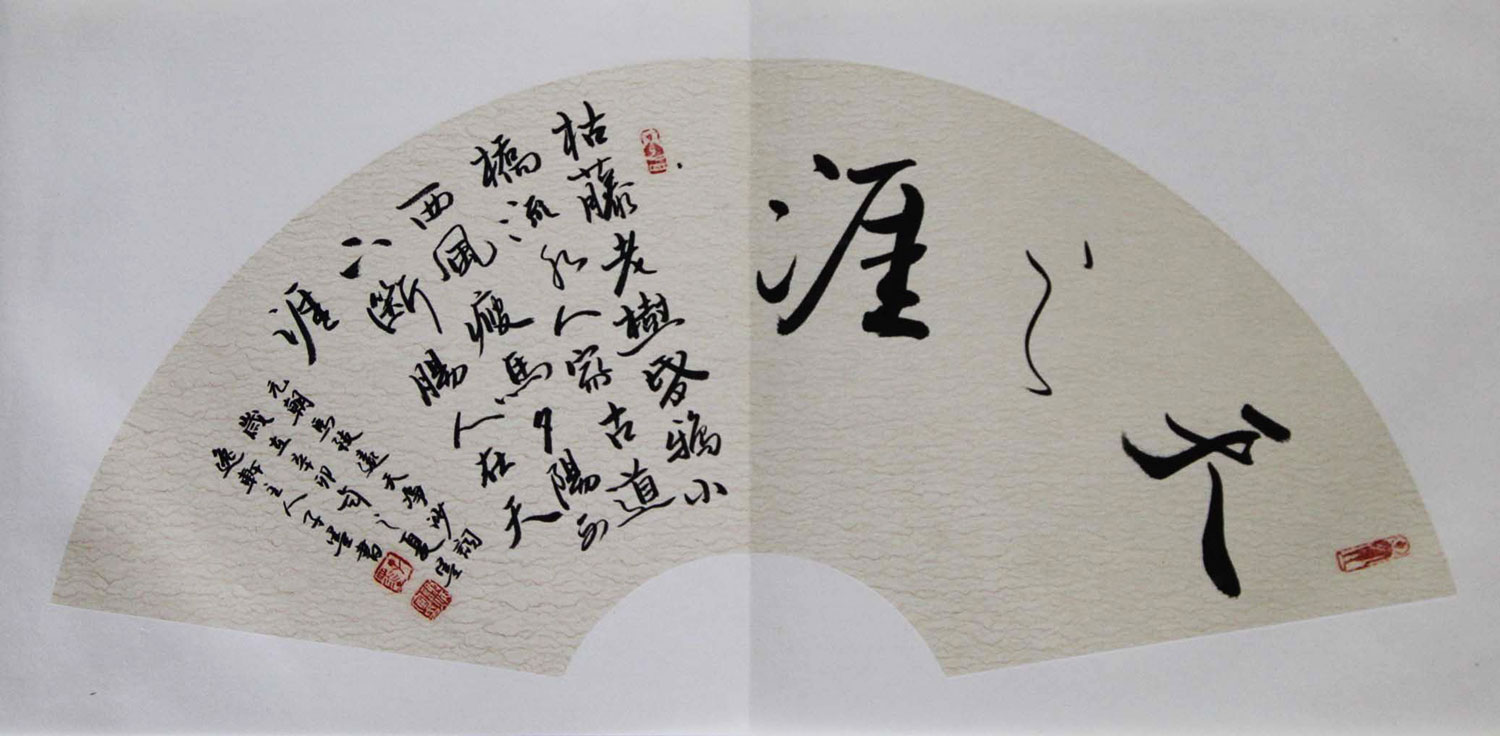 天之涯
枯藤老樹昏鴉小
橋流水人家古道
西風瘦馬夕陽西
下斷腸人在天
涯
元朝馬致遠天淨沙詞
歲在辛卯之夏
逸軒主人子書